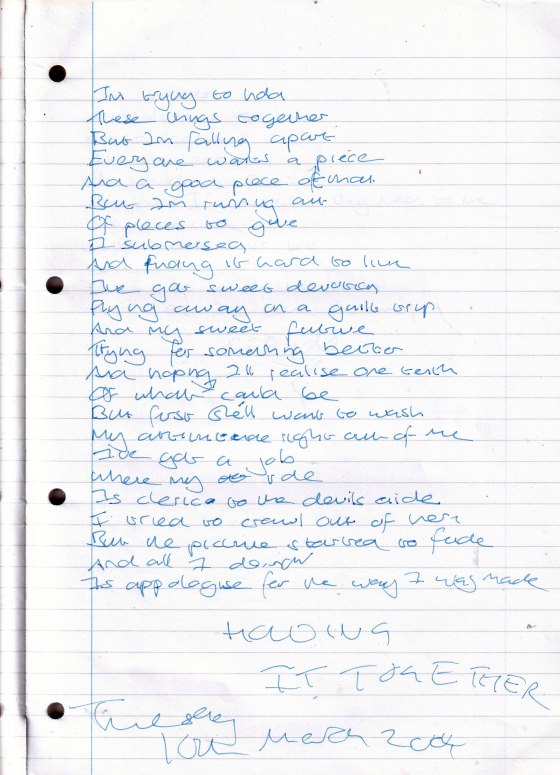 Im trying to hold
These things together
But Im falling apart
Everyone wants a piece
And a good piece of that
But Im running out
Of pieces to give
I submerged
And finding it hard to live
Ive got sweet devotion
Flying away on a guilt trip
And my sweet future
Trying for something better
And hoping Ill realise one tenth
Of what could be
But first She'll want to wash
My right out of me
I've got a job
Where my role
Is clerical to the devils aide
I tried to crawl out of here
But the picture started to fade
And all I do now
Is appologise for the way I was made
HOLDING
IT TOGETHER
Tuesday
March 2004